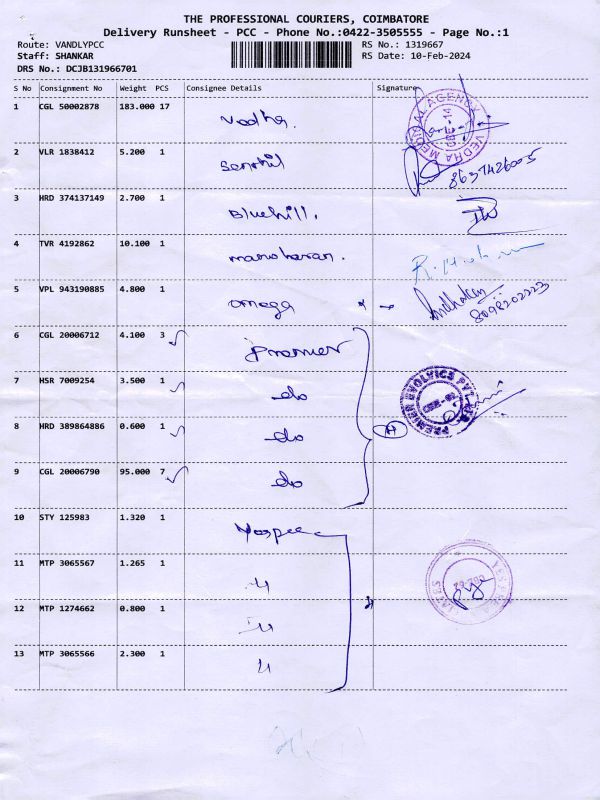 THE PROFESSIONAL COURIERS, COIMBATORE
Delivery Runsheet - PCC - Phone No.:0422-3505555 - Page No.:1
Route: VANDLYPCC RS No.: 1319667
Staff: SHANKAR RS Date: 10-Feb-2024
DRS No.: DCJB131966701
S No Consignment No Weight PCS Consignee Details Signature
1 CGL 50002878 183.000 17 Vedha.
VEDRA MEDICAL AGENCY
2 VLR 1838412 5.200 1 Senthil 8637426005
3 HRD 374137149 2.700 1 Bluehill.
4 TVR 4192862 10.100 1 manoharan.
5 VPL 943190885 4.800 1 omega 8098202223
6 CGL 20006712 4.100 3 Premier
7 HSR 7009254 3.500 1 do
PREMIER EVOLVICS PVT LTD
8 HRD 389864886 0.600 1 do
9 CGL 20006790 95.000 7 do
10 STY 125983 1.320 1
11 MTP 3065567 1.265 1
12 MTP 1274662 0.800 1
13 MTP 3065566 2.300 1